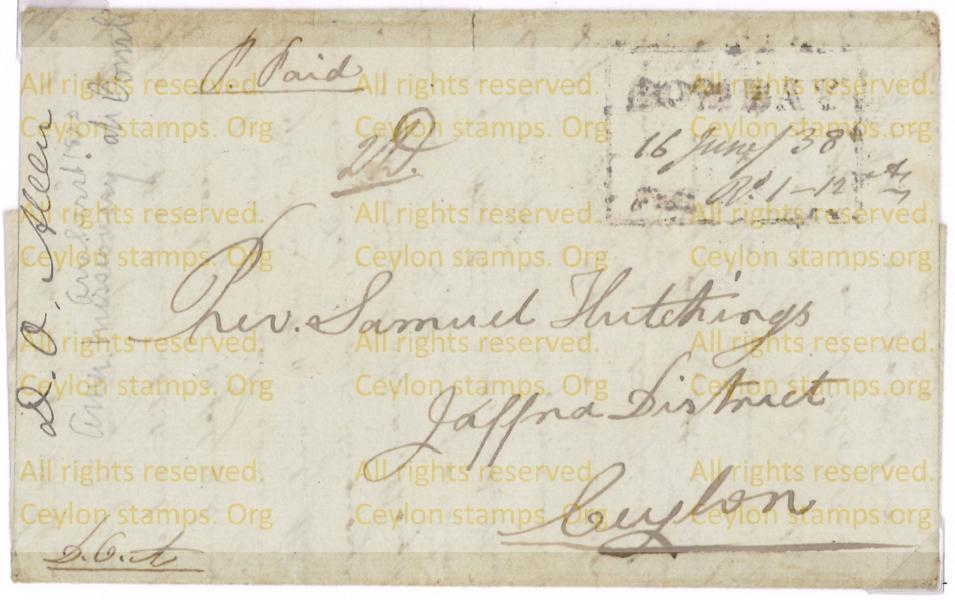 P. Paid
BOMBAY
16 June / 38
Rs. 1-12
Rev. Samuel Hutchings
Jaffna District
Ceylon
D. O. Allen
Amer missionary at Bombay
D. O. A
All rights reserved. All rights reserved. All rights reserved.
Ceylon stamps. Org Ceylon stamps. org Ceylon stamps.org
All rights reserved. All rights reserved. All rights reserved.
Ceylon stamps. Org Ceylon stamps. org Ceylon stamps.org
All rights reserved. All rights reserved. All rights reserved.
Ceylon stamps. Org Ceylon stamps. org Ceylon stamps.org
All rights reserved. All rights reserved. All rights reserved.
Ceylon stamps. Org Ceylon stamps. org Ceylon stamps.org